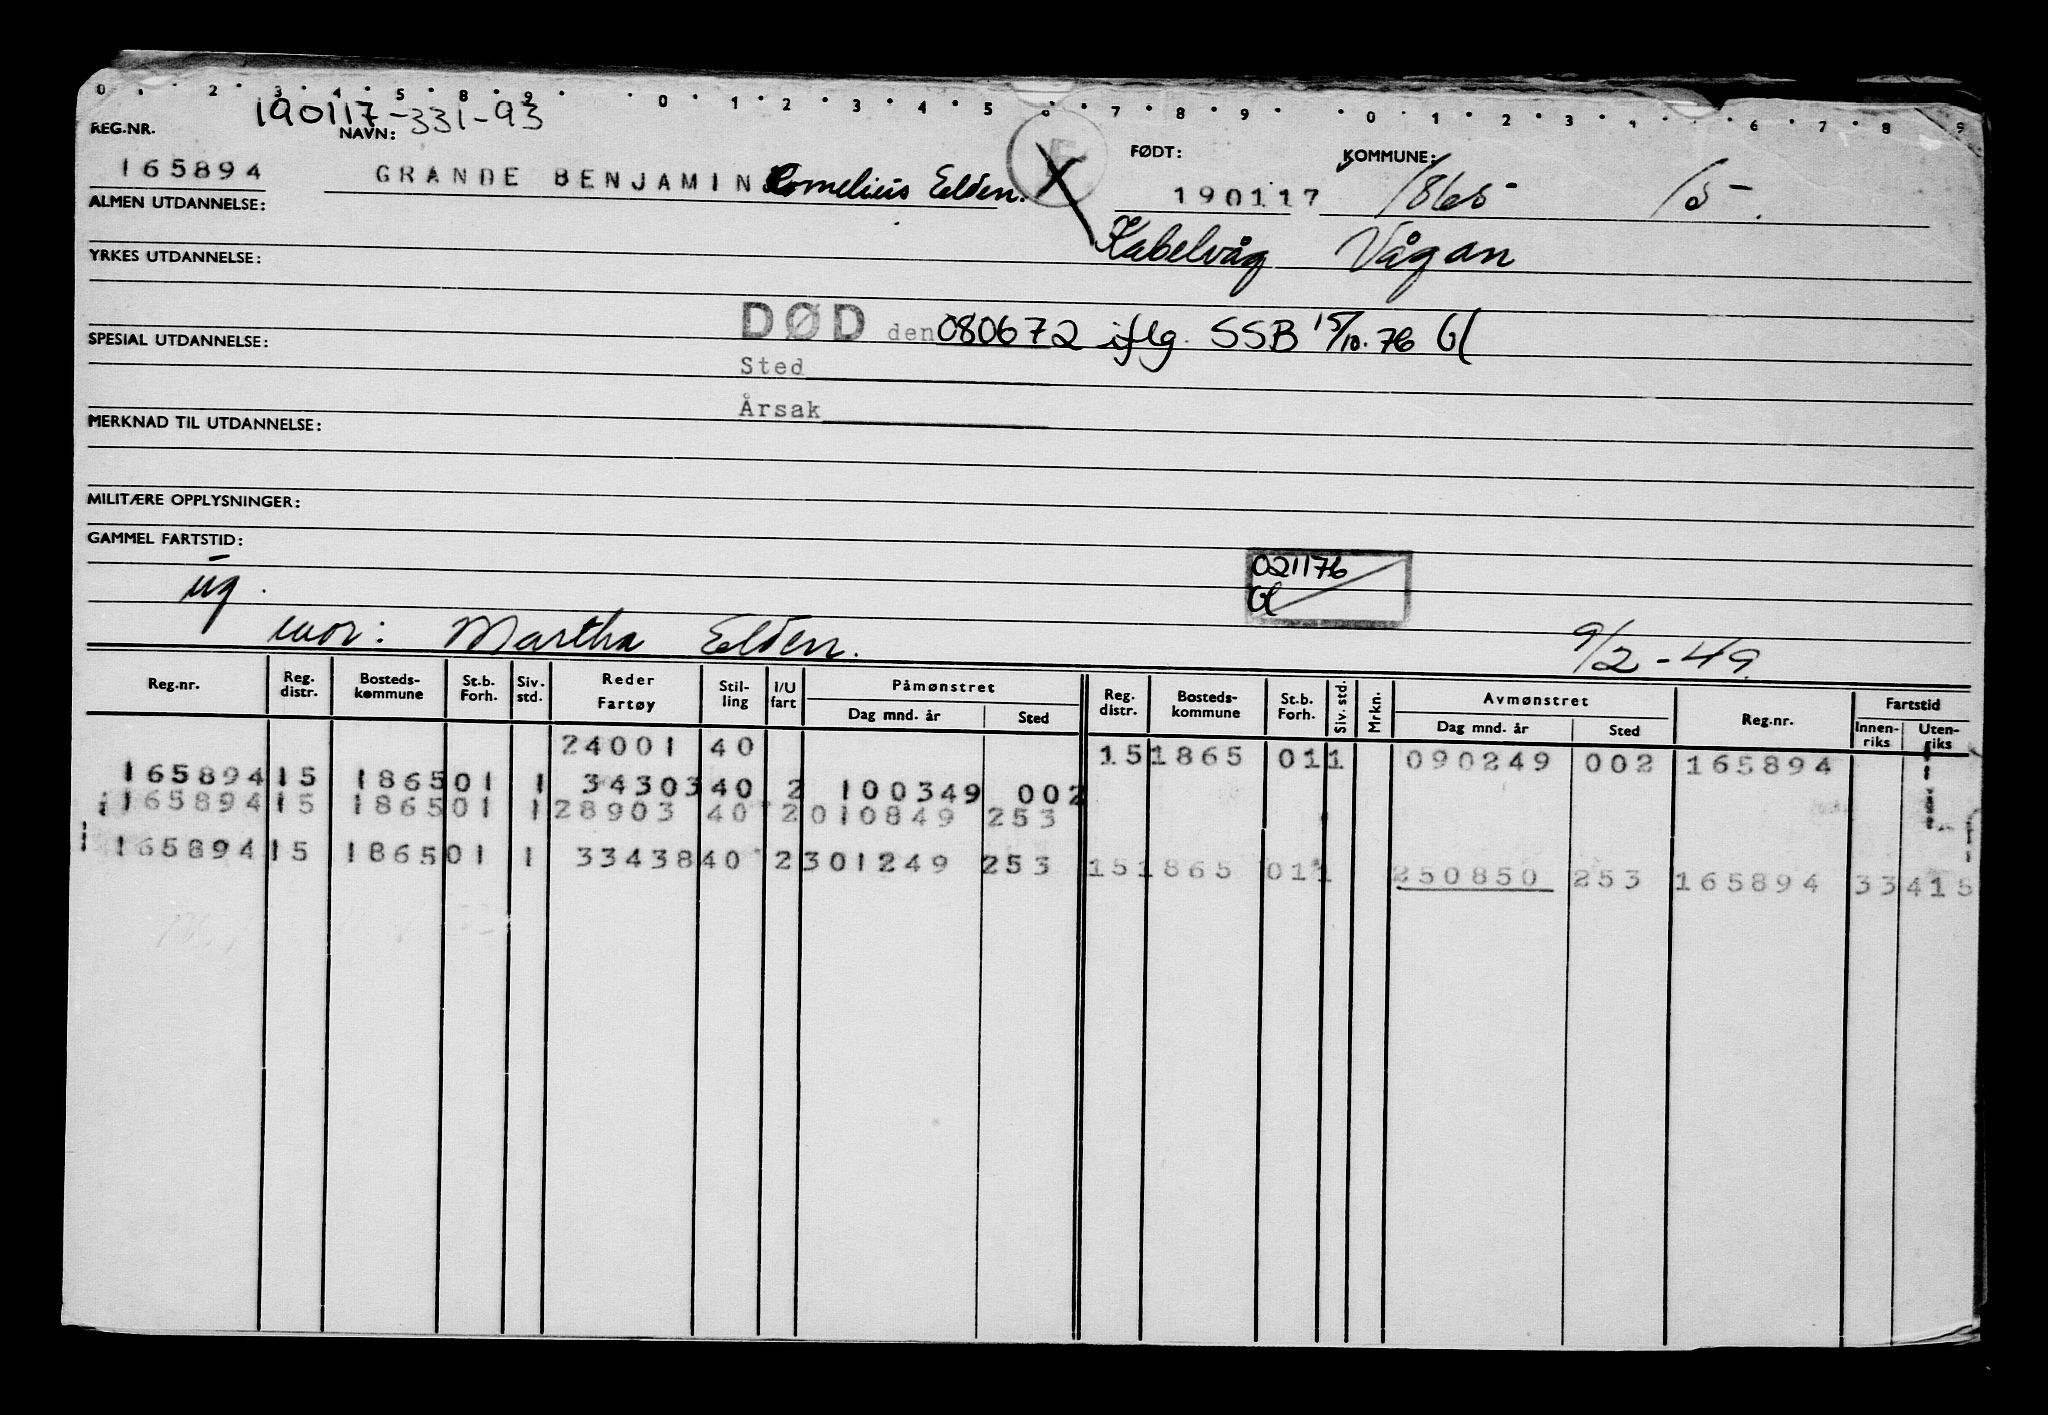 0 . 2 . 3 . 4 . 5 . 8 . 9 . . 0 . 1 . 2 . 3 . 4 . 5 . 6 . 7 . 8 . 9 . . 0 . 1 . 2 . 3 . 4 . . 6 . 7 . 8 . 9
190117-331-93
REG.NR. NAVN: FØDT: KOMMUNE:
165894 GRANDE BENJAMIN Cornelius Elden. E 190117 1865 15.
ALMEN UTDANNELSE: Kabelvåg Vågan
YRKES UTDANNELSE:
DØD den 080672 iflg. SSB 15/10.76 Gl
SPESIAL UTDANNELSE:
Sted
Årsak
MERKNAD TIL UTDANNELSE:
MILITÆRE OPPLYSNINGER:
GAMMEL FARTSTID:
021176
Gl
ug.
mor: Martha Elden. 9/2-49.
Reg.nr. Reg. distr. Bosteds- kømmune St.b. Forh. Siv. std. Reder Fartøy Stil- ling I/U fart Påmønstret Dag mnd. år Sted Reg. distr. Bosteds- kommune St.b. Forh. Siv. std. Mrkn. Avmønstret Dag mnd. år Sted Reg.nr. Fartstid Innen- riks Uten- riks
24001 40 15 1865 01 1 090249 002 165894
165894 15 1865 01 1 34303 40 2 100349 002
165894 15 1865 01 1 28903 40 2 010849 253
165894 15 1865 01 1 33438 40 2 301249 253 15 1865 01 1 250850 253 165894 33 415